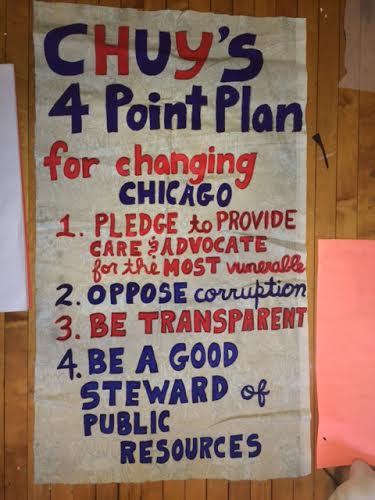 CHUY'S
4 Point Plan
for changing
CHICAGO
1. PLEDGE to PROVIDE
CARE & ADVOCATE
for the MOST vunerable
2. OPPOSE corruption
3. BE TRANSPARENT
4. BE A GOOD
STEWARD of
PUBLIC
RESOURCES